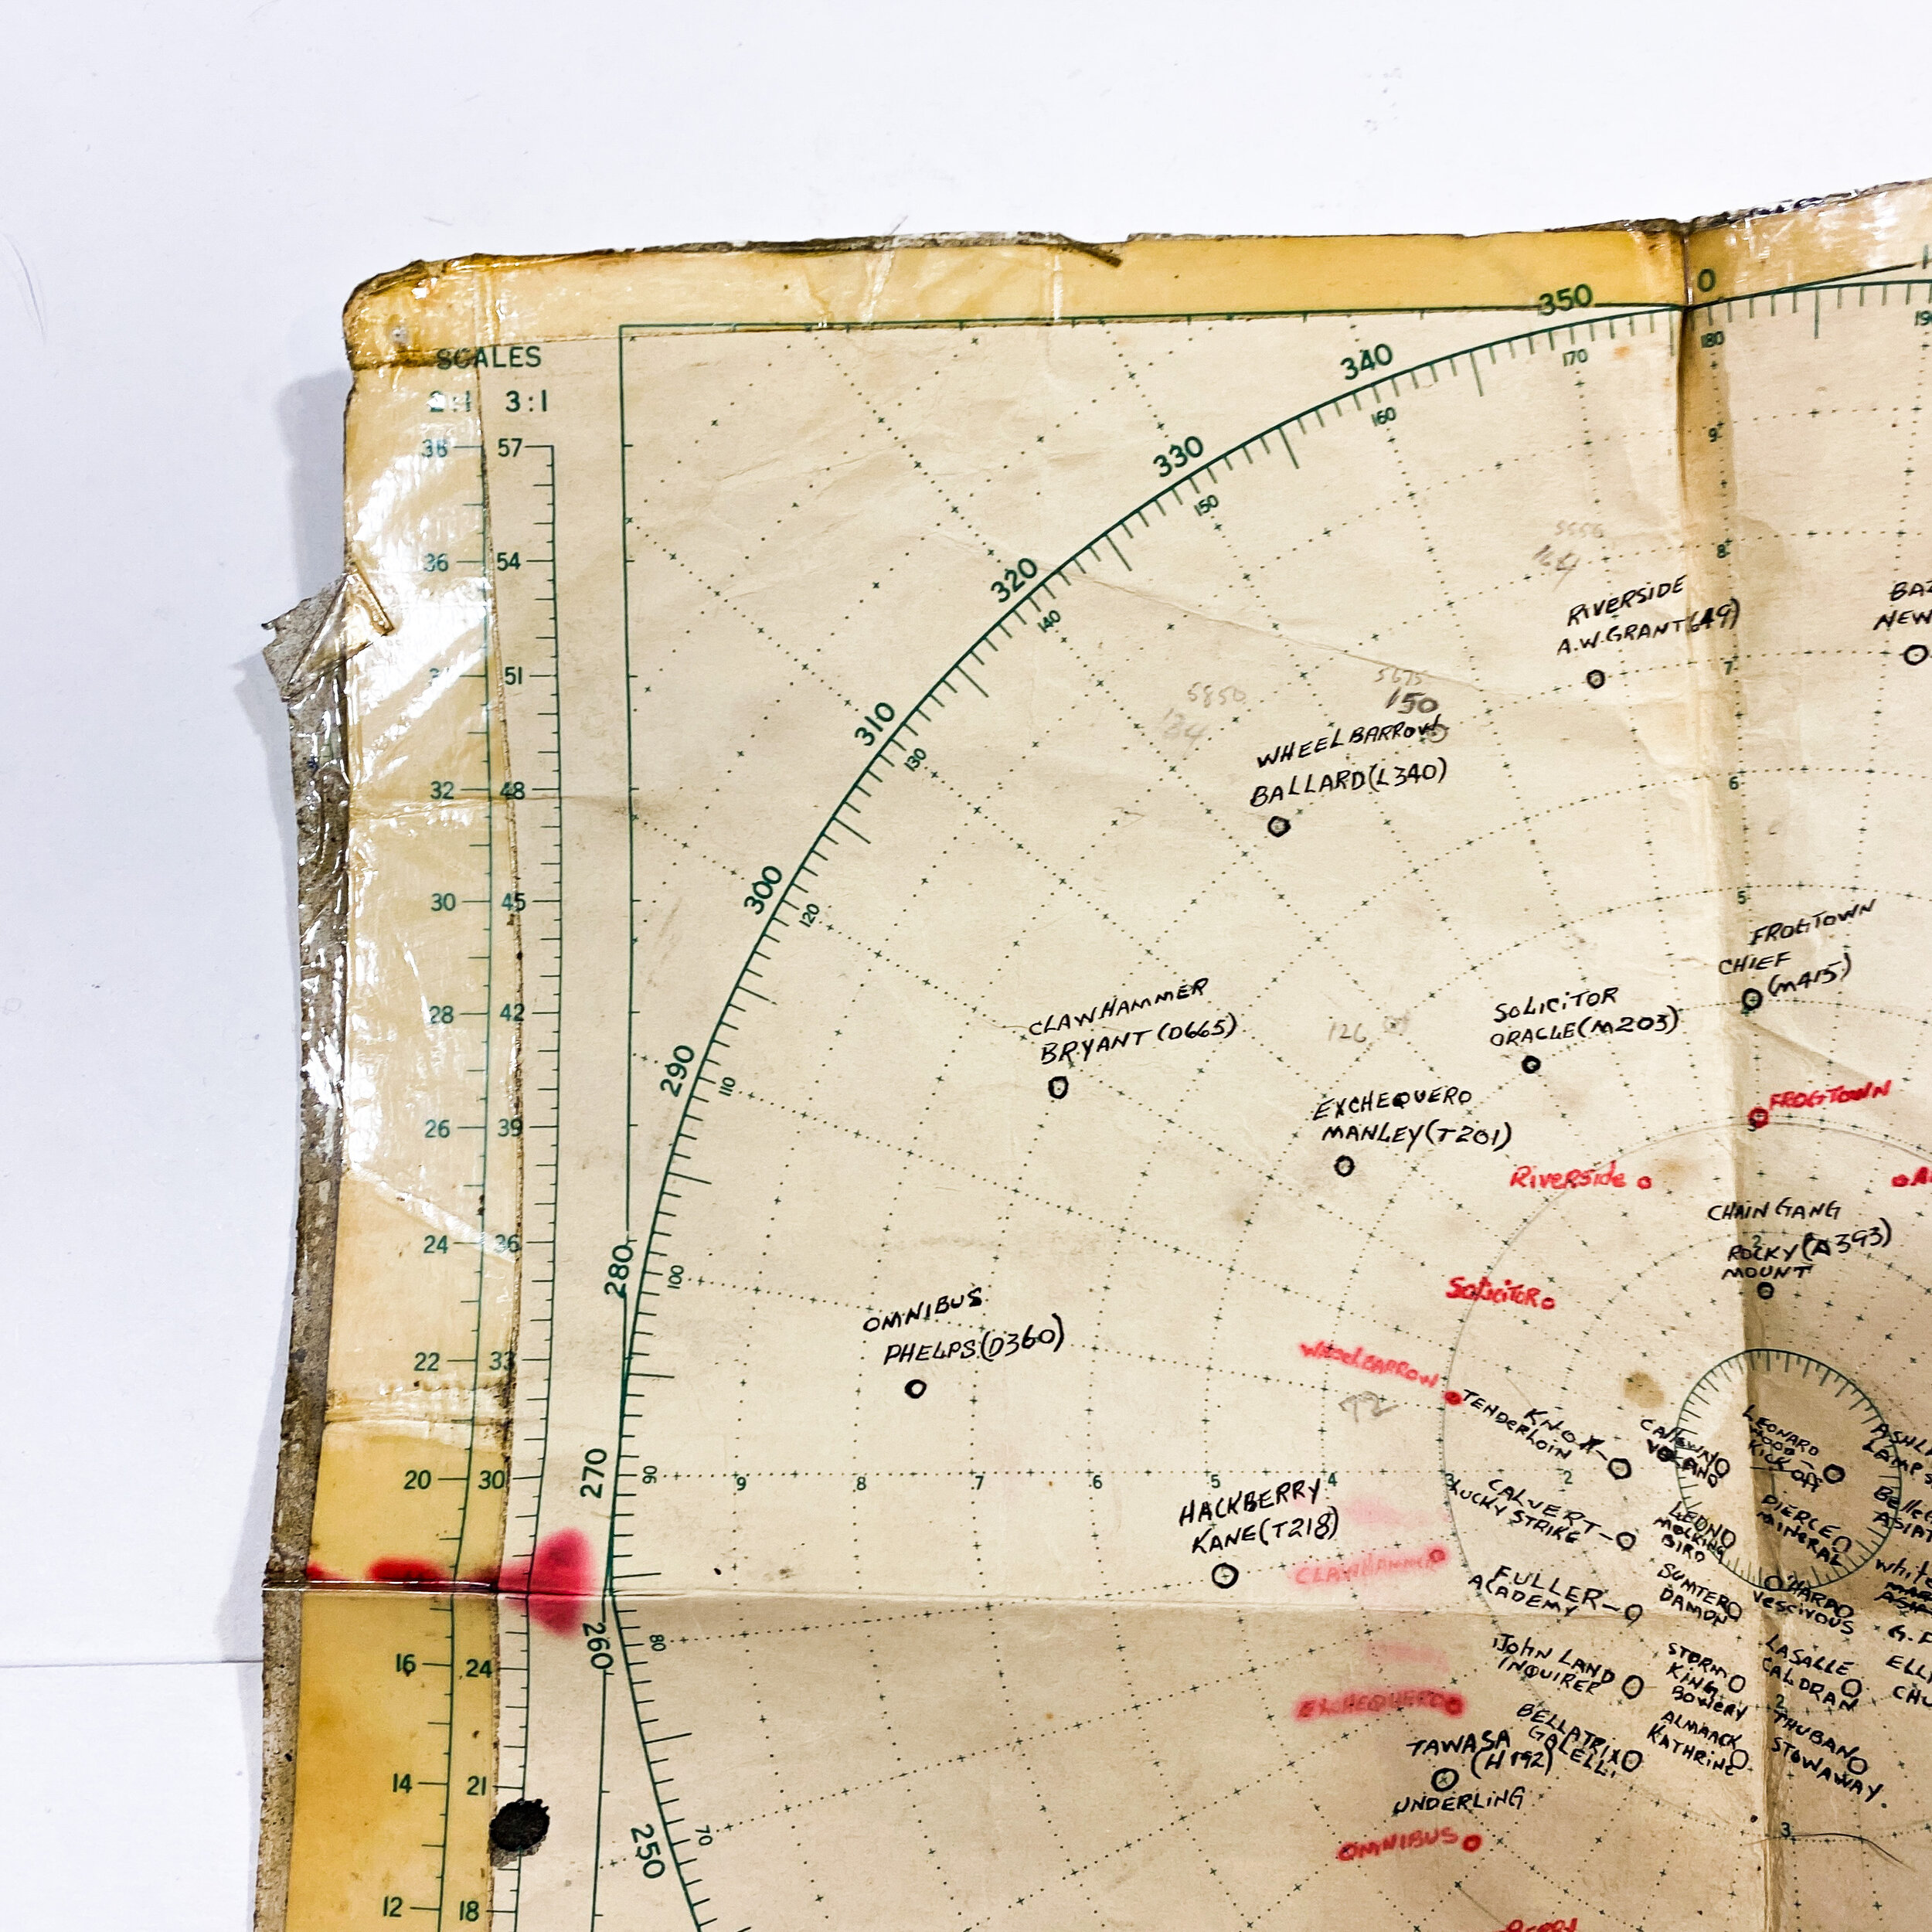 350
0
340
170
180
SCALES
330
160
2:1 3:1
38 57
9
150
320
5556
8
36 54
164
140
RIVERSIDE
A.W.GRANT(649)
NEW
7
51
5675
310
5850
150
134
WHEELBARROW
130
BALLARD(L340)
6
32 48
300
5
30 45
120
FROGTOWN
CHIEF
(M415)
CLAWHAMMER
SOLICITOR
BRYANT (D665)
126
ORACLE(M203)
28 42
290
110
EXCHEQUERO
MANLEY(T201)
FROGTOWN
26 39
3
Riverside
CHAIN GANG
2
24 36
ROCKY(A393)
MOUNT
280
100
SOLICITOR
OMNIBUS
PHELPS(D360)
WHEELBARROW
22 33
92
TENDERLOIN
KNOX
LEONARD
WOOD
KICKOFF
270
20 30
90 9 8 7 6 5 4 3 2
HACKBERRY
KANE(T218)
CALVERT
LUCKY STRIKE
LEON
MOCKING
BIRD
PIERCE
MINERAL
CLAWHAMMER
FULLER
ACADEMY
SUMTER
DAMON
HARP
VESCIVOUS
260
80
16 24
JOHN LAND
INQUIRER
STORM
KING
BOWERY
LASALLE
CALDRAN
EXCHEQUERO
2
BELLATRIX
GOLELLI
ALMAACK
KATHRINE
THUBAN
STOWAWAY
TAWASA
(H192)
UNDERLING
14 21
OMNIBUS
3
250
70
12 18